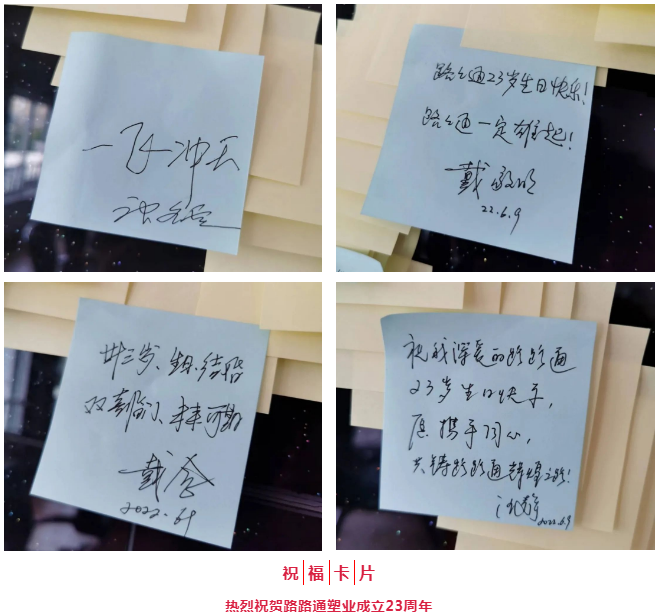 一飞冲天
路路通23岁生日快乐!
路路通一定雄起!
戴敬明
22.6.9
廿三岁、
双喜临门、未来可期
戴
2022.6.9
祝我深爱的路路通
23岁生日快乐,
愿携手同心,
共铸路路通辉煌之路!
2022.6.9
祝福卡片
热烈祝贺路路通塑业成立23周年